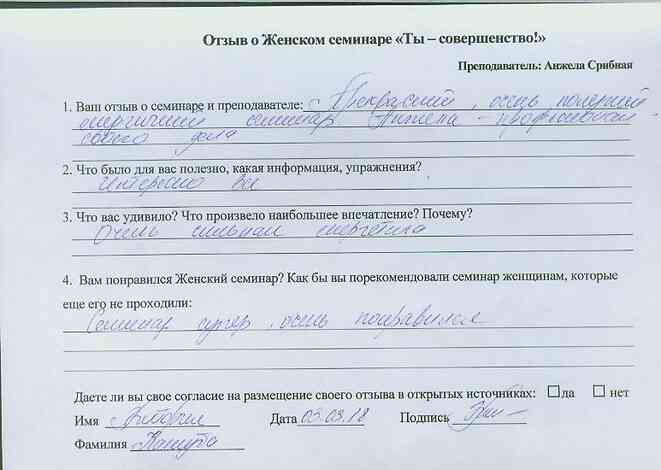 Отзыв о Женском семинаре «Ты – совершенство!»
Преподаватель: Анжела Срибная
1. Ваш отзыв о семинаре и преподавателе: Прекрасный, очень полезный
энергичный семинар. Анжела - профессионал
своего дела
2. Что было для вас полезно, какая информация, упражнения?
Интересно все
3. Что вас удивило? Что произвело наибольшее впечатление? Почему?
Очень сильная энергетика
4. Вам понравился Женский семинар? Как бы вы порекомендовали семинар женщинам, которые
еще его не проходили:
Семинар супер, очень понравился
Даете ли вы свое согласие на размещение своего отзыва в открытых источниках: да нет
Имя Дата 03.03.18 Подпись
Фамилия